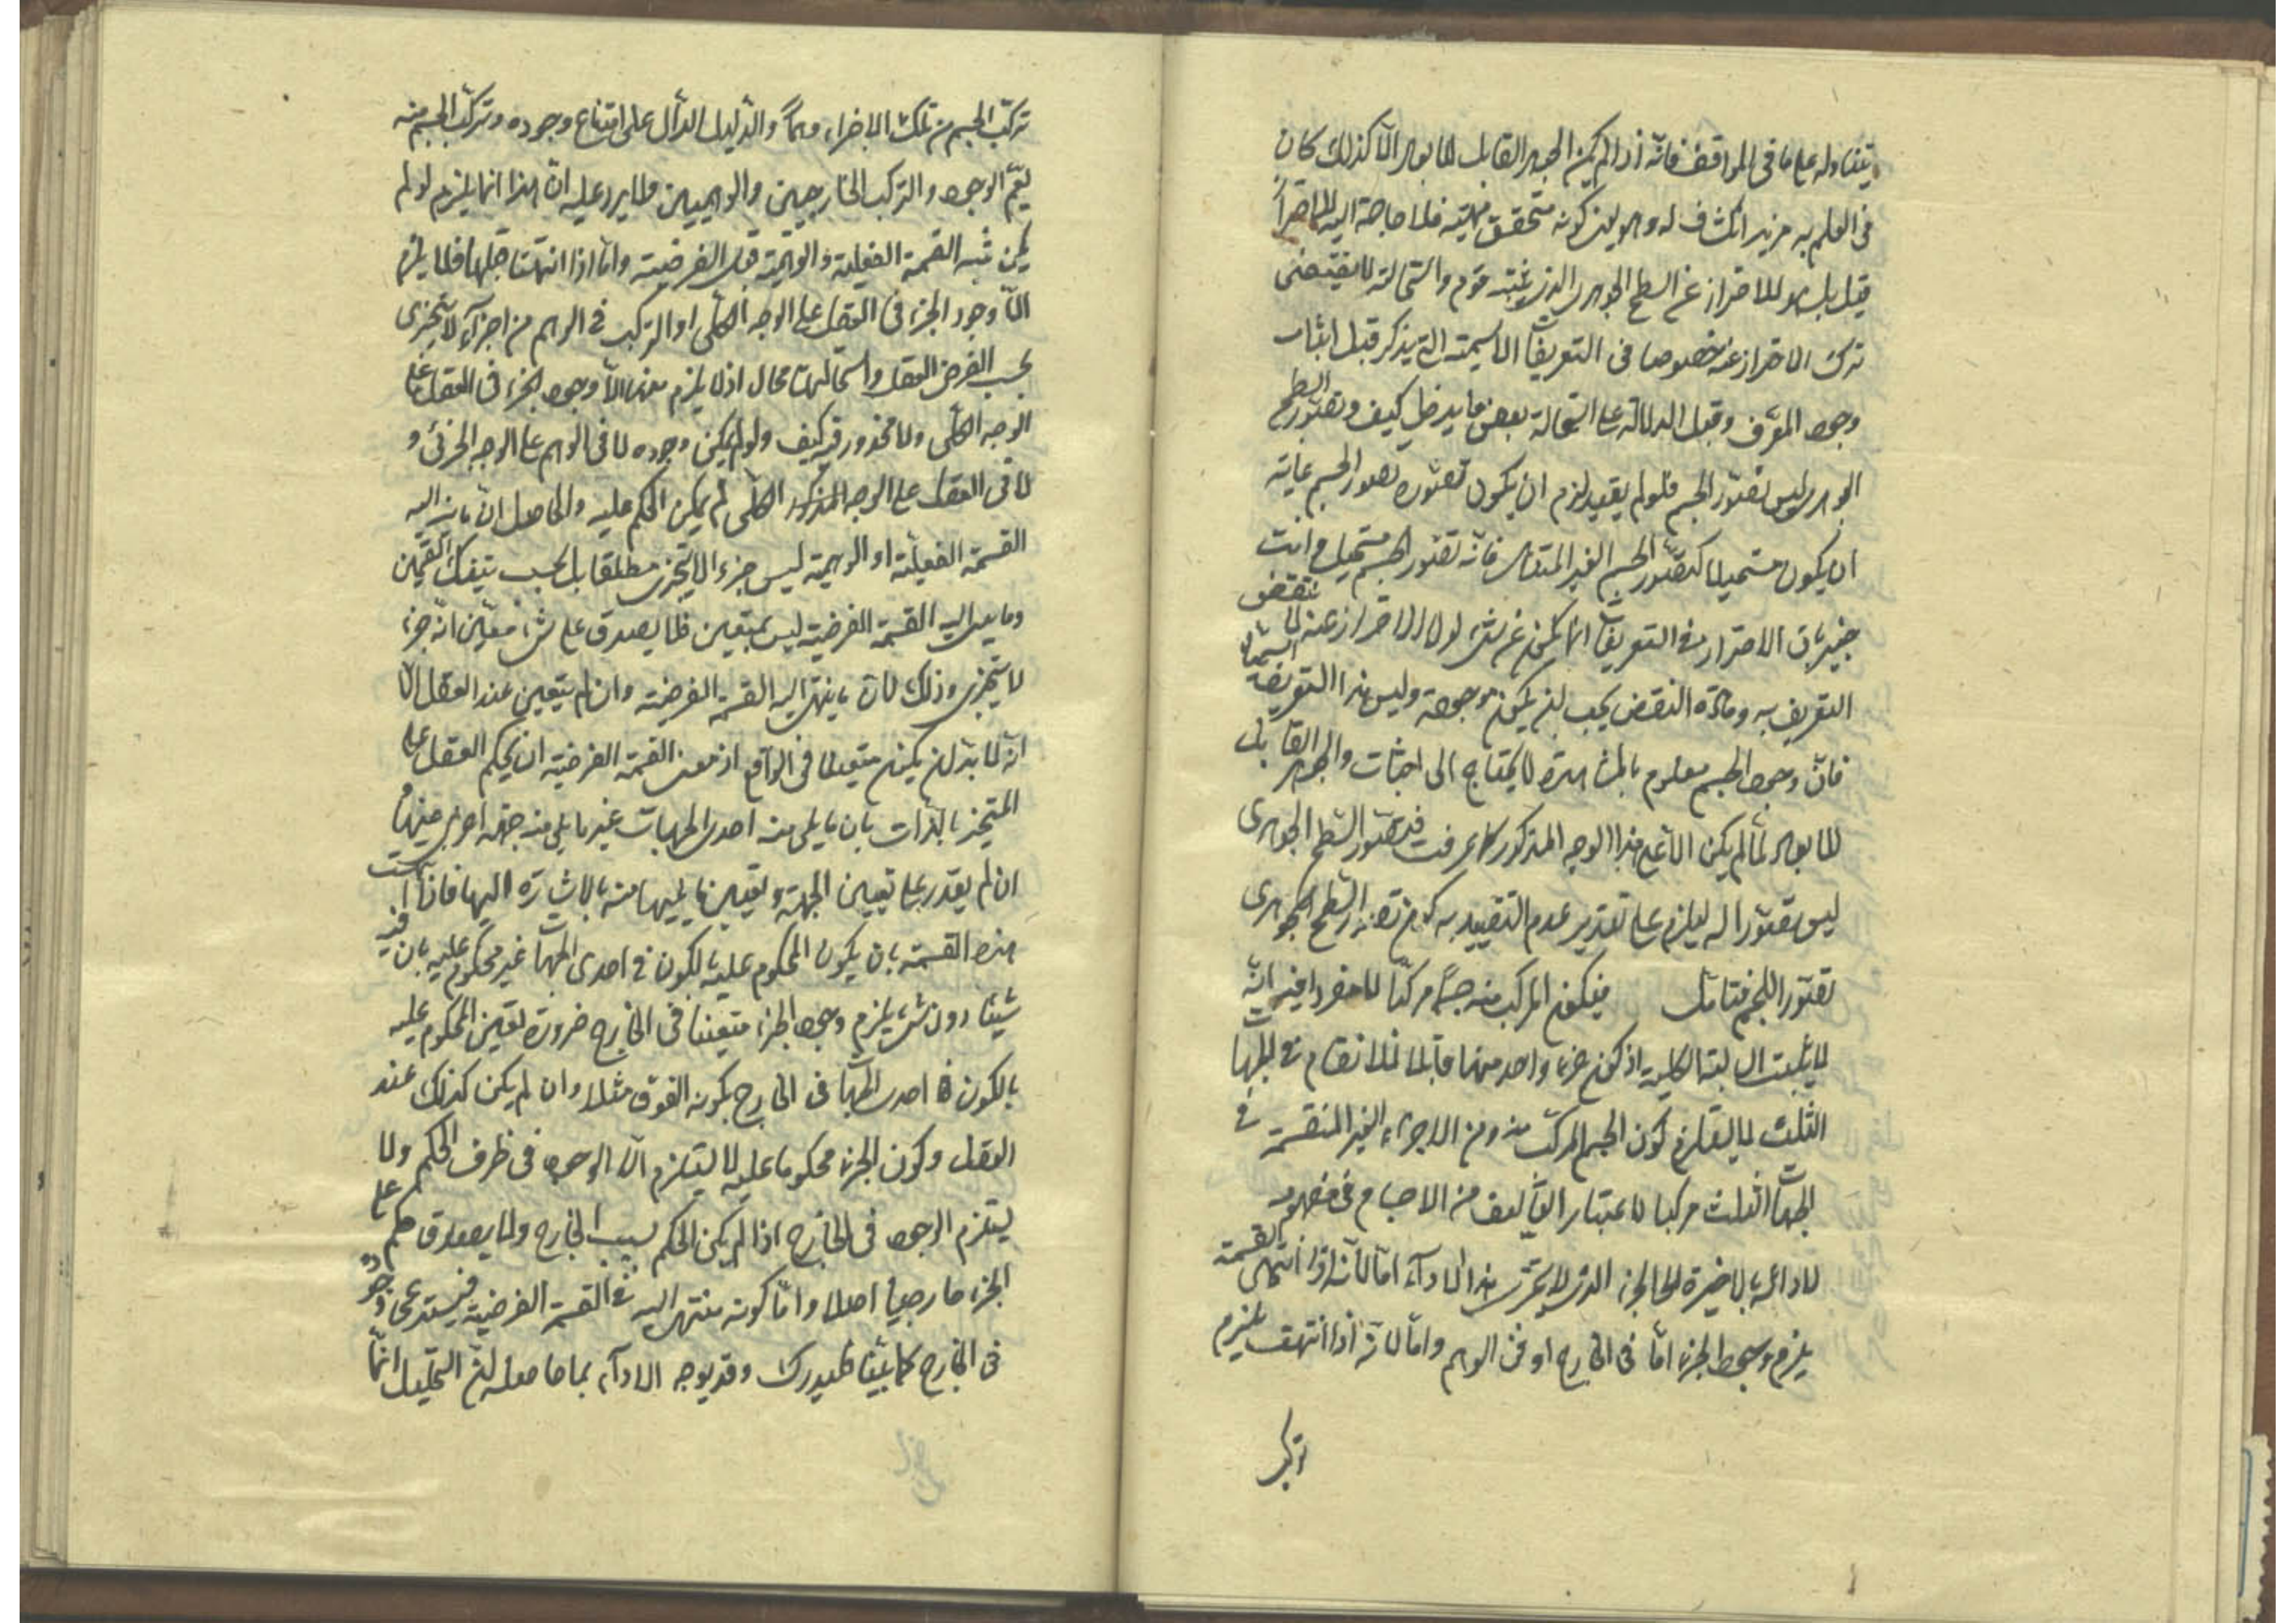 يتناوله على ما في المواقف فانه اذا لم يكن الجوهر القابل للابعاد الا كذلك كان
في العلم به مزيد انكشاف له وهو يفيد كونه متحقق مهيته فلا حاجة اليه للاحتراز
قيل بل هو للاحتراز عن السطح الجوهري الذي يثبته قوم واستحالته لا يقتضى
ترك الاحتراز عنه خصوصا في التعريفات الاسمية التي يذكر قبل اثبات
وجود المعرف وقبل الدلالة على استحالة بعض ما يدخل كيف وتصور السطح
الجوهري ليس تصور الجسم فلو لم يقيد لزم ان يكون تصوره تصور الجسم غايته
ان يكون مستحيلا كتصور الجسم الغير المتناهى فانه تصور لجسم مستحيل وانت
خبير بان الاحتراز في التعريفات انما يكون عن شئ لولا الاحتراز عنه لانتقض
التعريف به ومادة النقض يجب ان يكون موجودة وليس هذا التعريف اسميا
فان وجود الجسم معلوم بالمشاهدة لا يحتاج الى اثبات والجوهر القابل
للابعاد لما لم يكن الا على هذا الوجه المذكور كما عرفت فتصور السطح الجوهرى
ليس تصورا له ليلزم على تقدير عدم التقييد به كون تصور السطح الجوهرى
تصور الجسم فتامل فيكون المركب منه جسما مركبا لا مفردا فيه انه
لا يثبت السالبة الكلية اذ كون جزء واحد منها قابلا للانقسام في الجهات
الثلث لا يستلزم كون الجسم المركب منه ومن الاجزاء الغير المنقسمة في
الجهات الثلث مركبا لاعتبار التأليف من الاجسام في مفهومه
لاداعه بالاخرة الى الجزء الذى لا يتجزى هذا الاداء اما لانه اذا انتهى القسمة
يلزم وجود الجزء اما في الخارج او في الوهم واما لانه اذا انتهت يلزم
تركب
تركب الجسم من تلك الاجزاء وهما والدليل الدال على امتناع وجوده وتركب الجسم منه
يعم الوجود والتركب الخارجيين والوهميين ولا يرد عليه ان هذا انما يلزم لو لم
يكن تثبه القسمة الفعلية والوهمية قبل الفرضية واما اذا انتهتا قبلها فلا يلزم
الا وجود الجزء في العقل على الوجه الكلى او التركب في الوهم من اجزاء لا يتجزى
بحسب الفرض العقلى واستحالتهما محال اذ لا يلزم منهما الا وجود الجزء في العقل على
الوجه الكلى ولا محذور فيه كيف ولو لم يكن وجوده لا في الوهم على الوجه الجزئى و
لا في العقل على الوجه المذكور الكلى لم يمكن الحكم عليه والحاصل ان ما ينتهى اليه
القسمة الفعلية او الوهمية ليس جزء لا يتجزى مطلقا بل بحسب تينك القسمتين
وما ينتهى اليه القسمة الفرضية ليس بمتعين فلا يصدق على شئ معين انه جزء
لا يتجزى وذلك لان ما ينتهى اليه القسمة الفرضية وان لم يتعين عند العقل الا
انه لا بد ان يكون متعينا في الواقع اذ معنى القسمة الفرضية ان يحكم العقل على
المتحيز بالذات بان ما يلى منه احدى الجهات غير ما يلى منه جهة اخرى منها و
ان لم يقدر على تعيين الجهة وتعيين ما يليها منه بالاشارة اليها فاذا انتهت
هذه القسمة بان يكون المحكوم عليه بالكون في احدى الجهات غير محكوم عليه بان فيه
شيئا دون شئ يلزم وجود الجزء متعينا في الخارج ضرورة تعين المحكوم عليه
بالكون في احدى الجهات في الخارج بكونه الفوق مثلا وان لم يكن كذلك عند
العقل وكون الجزء محكوما عليه لا يستلزم الا الوجود في ظرف الحكم ولا
يستلزم الوجود في الخارج اذا لم يكن الحكم بسبب الخارج ولا يصدق حكم على
الجزء خارجيا اصلا واما كونه منتهى اليه في القسمة الفرضية فيستدعى وجوده
في الخارج كما بينا فليدرك وقد يوجه الاداء بما حاصله ان التحليل انما